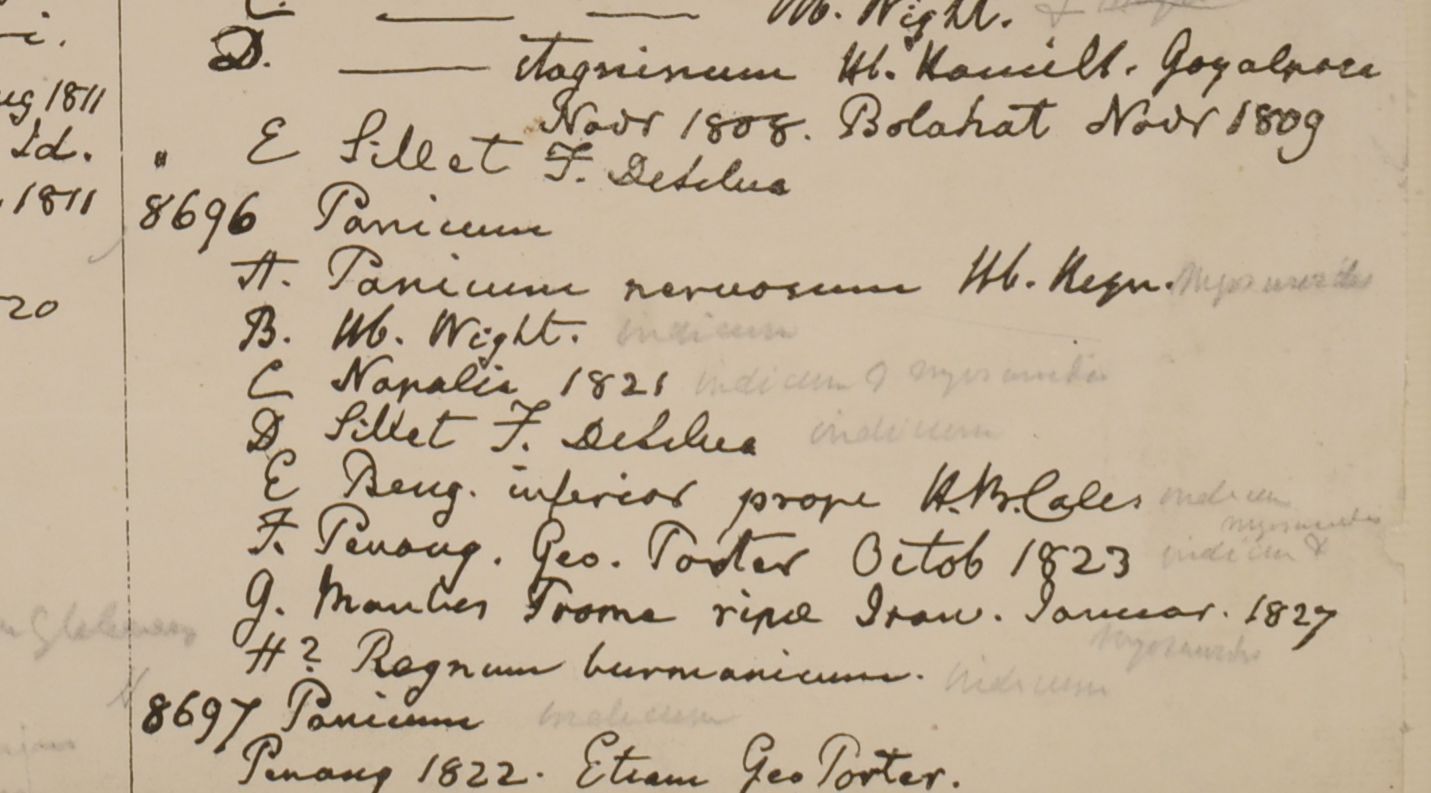 C. Hb. Wight. &
i.
D. stagninum Hb. Hamilt. Goyalpara
ug 1811
Novr 1808. Bolahat Novr 1809
Id.
" E Sillet F. DeSilva
1811
8696 Panicum
A. Panicum nervosum Hb. Heyn. myosuroides
20
B. Hb. Wight. indicum
C Napalia 1821 indicum & myosuroides
D Sillet F. DeSilva indicum
E Beng. inferior prope indicum
myosuroides
F. Penang. Geo. Porter Octob 1823 indicum &
G. Prome ripæ Iraw. Januar. 1827
myosuroides
H? Regnum burmanicum. indicum
8697 Panicum indicum
Penang 1822. Etiam Geo Porter.